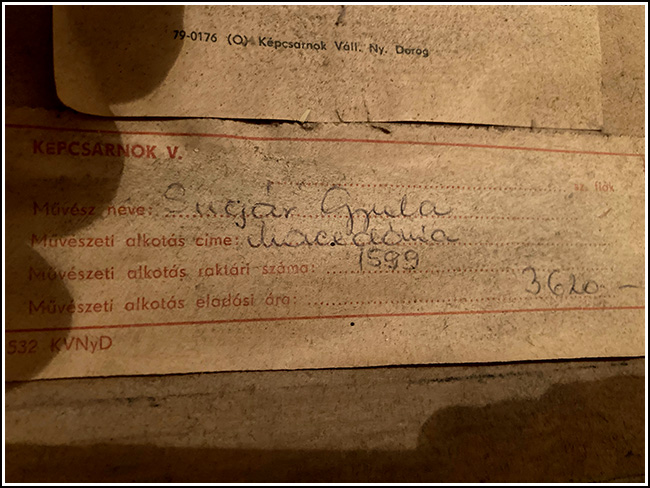 79-0176 (O) Képcsarnok Váll. Ny. Dorog
KÉPCSARNOK V.
sz. fiók
Művész neve: Sugár Gyula
Művészeti alkotás címe: Macedónia
Művészeti alkotás raktári száma: 1599
Művészeti alkotás eladási ára: 3620 —
532 KVNyD